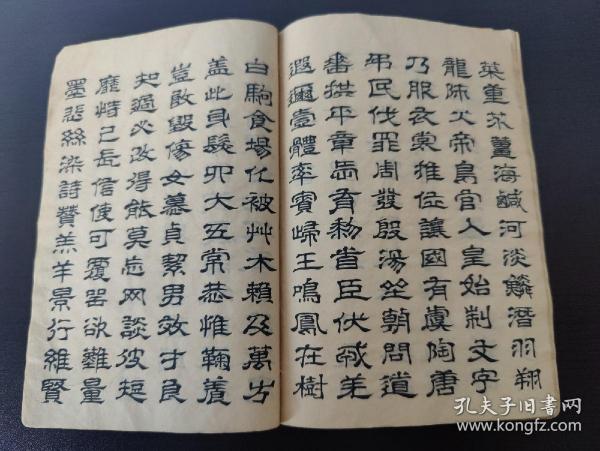 菜重芥薑海鹹河淡鱗潛羽翔
龍師火帝鳥官人皇始制文字
乃服衣裳推位讓國有虞陶唐
弔民伐罪周發殷湯坐朝問道
垂拱平章愛育黎首臣伏戎羌
遐邇壹體率賓歸王鳴鳳在樹
白駒食場化被艸木賴及萬方
蓋此身髮四大五常恭惟鞠養
豈敢毀傷女慕貞絜男效才良
知過必改得能莫忘网談彼短
靡恃己長信使可覆器欲難量
墨悲絲染詩贊羔羊景行維賢
孔夫子旧书网
www.kongfz.com